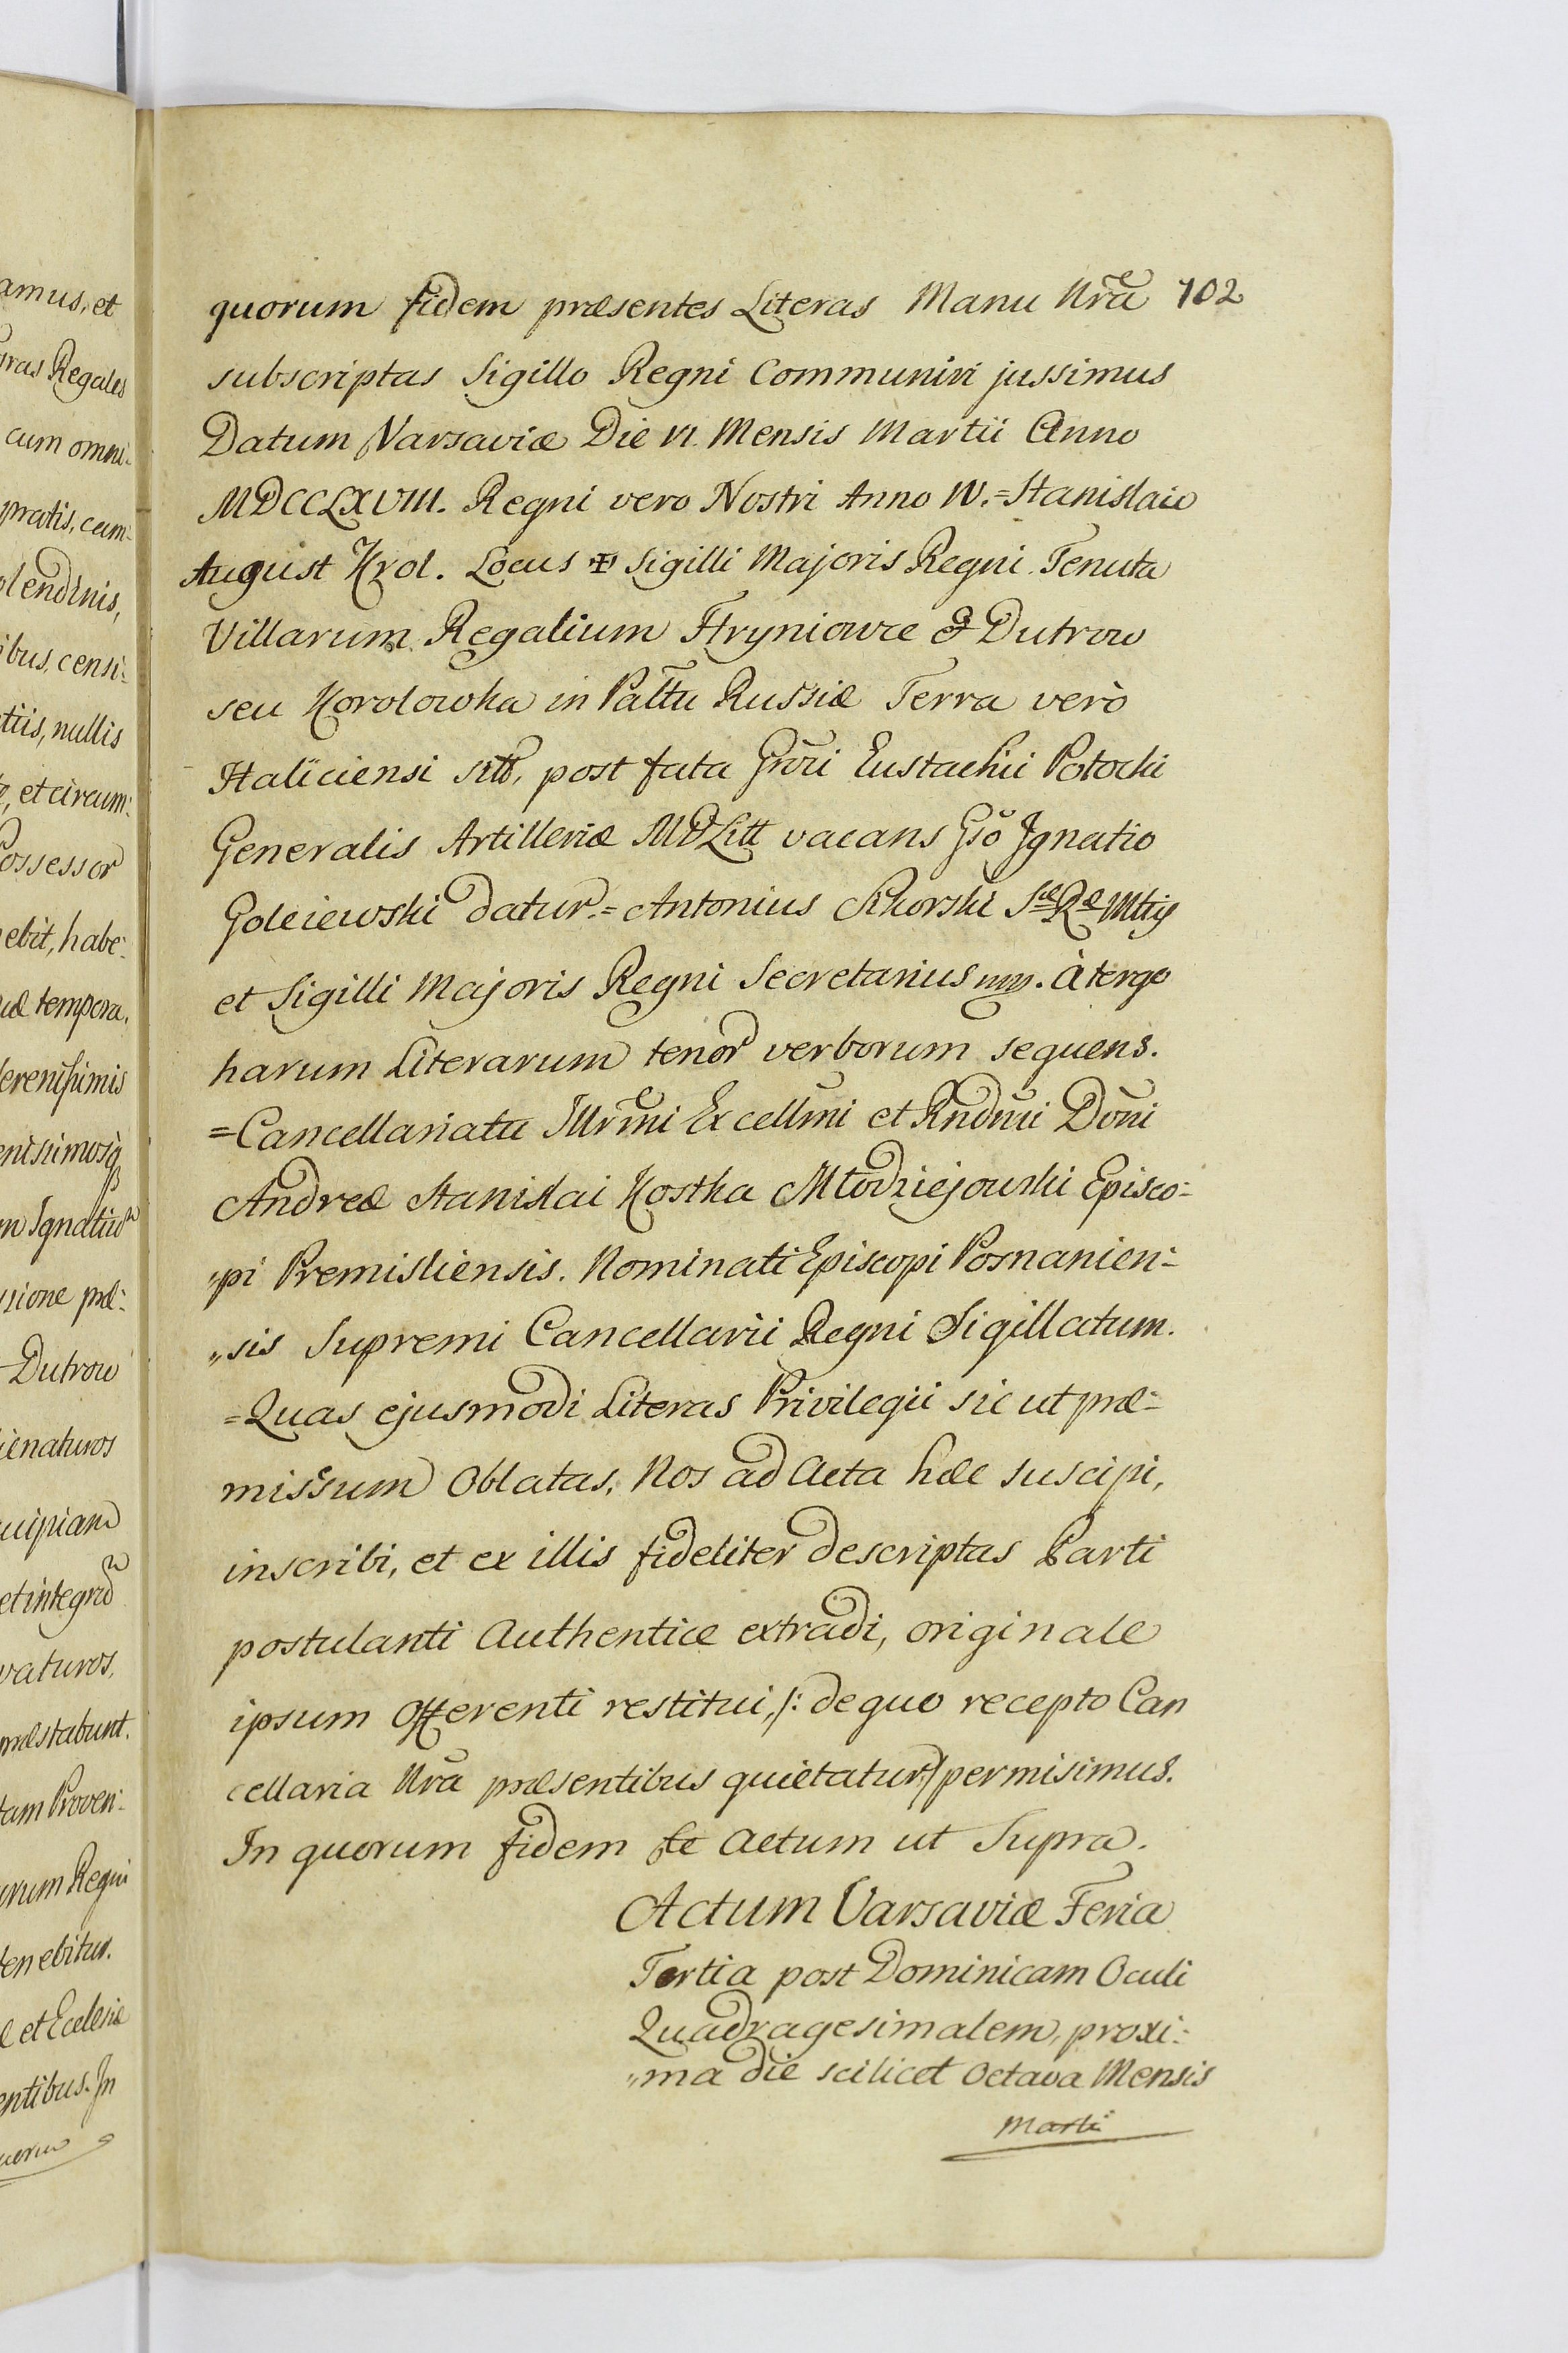 amus, et
ras Regales
cum omni:
pratis, cam:
olendinis,
ibus, censi:
tiis, nullis
et circum:
Possessor
ebit, habe:
tempora,
Serenissimis
m Ignatium
sione præ:
Dutrow
ienaturos
cipiam
et integrū
vaturos,
præstabunt.
tam Proven:
orum Regni
tenebitur.
et Ecclesiæ
entibus. In
quorum fidem præsentes Literas Manu Nrã 102
subscriptas Sigillo Regni Communiri jussimus
Datum Varsaviæ Die VI. Mensis Martii Anno
MDCCLXVIII. Regni vero Nostri Anno IV.=Stanislaw
August Krol. Locus ✠ Sigilli Majoris Regni. Tenuta
Villarum Regalium Hryniowce & Dutrow
seu Korolowka in Paltu Russiæ Terra verò
Haliciensi sitt, post fata Grõi Eustachii Potocki
Generalis Artilleriæ MDLitt vacans Gsõ Ignatio
Goleiewski datur.= Antonius Sikorski Sæ Ræ Mttis
et Sigilli Majoris Regni Secretarius mp. à tergo
harum Literarum tenor verborum sequens.
=Cancellariatu Illrmi Excellmi et Rndmi Dõni
Andreæ Stanislai Kostka Młodziejowski Episco:
„pi Premisliensis. Nominati Episcopi Posnanien:
„sis Supremi Cancellarii Regni Sigillatum.
=Quas ejusmodi Literas Privilegii sic ut præ:
missum Oblatas, Nos ad Acta hæc suscipi,
inscribi, et ex illis fideliter descriptas Parti
postulanti Authentice extradi, originale
ipsum Offerenti restitui, /: de quo recepto Can
cellaria Nrã præsentibus quietatur :/ permisimus.
In quorum fidem &c Actum ut Supra.
Actum Varsaviæ Feria
Tertia post Dominicam Oculi
Quadragesimalem, proxi:
„ma die scilicet Octava Mensis
Marti